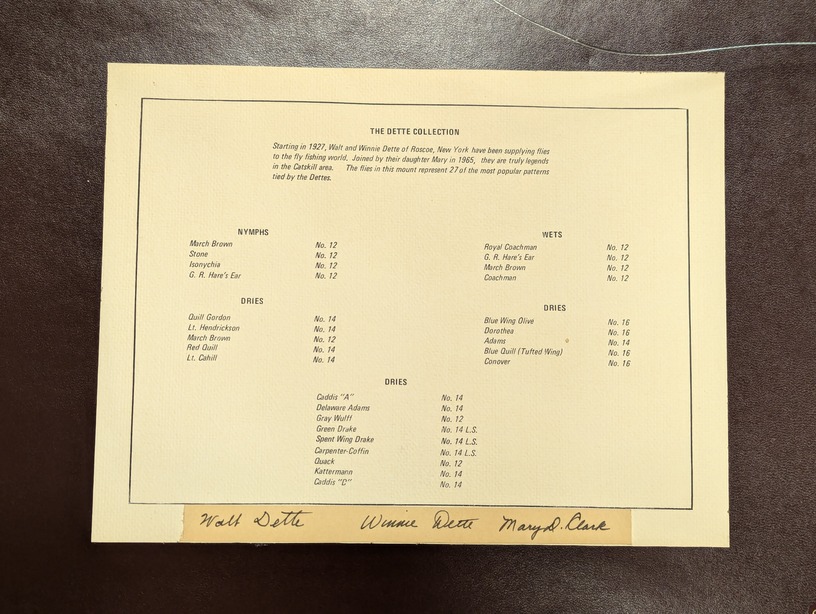 THE DETTE COLLECTION
Starting in 1927, Walt and Winnie Dette of Roscoe, New York have been supplying flies
to the fly fishing world. Joined by their daughter Mary in 1965, they are truly legends
in the Catskill area. The flies in this mount represent 27 of the most popular patterns
tied by the Dettes.
NYMPHS
March Brown No. 12
Stone No. 12
Isonychia No. 12
G. R. Hare's Ear No. 12
WETS
Royal Coachman No. 12
G. R. Hare's Ear No. 12
March Brown No. 12
Coachman No. 12
DRIES
Quill Gordon No. 14
Lt. Hendrickson No. 14
March Brown No. 12
Red Quill No. 14
Lt. Cahill No. 14
DRIES
Blue Wing Olive No. 16
Dorothea No. 16
Adams No. 14
Blue Quill (Tufted Wing) No. 16
Conover No. 16
DRIES
Caddis "A" No. 14
Delaware Adams No. 14
Gray Wulff No. 12
Green Drake No. 14 L.S.
Spent Wing Drake No. 14 L.S.
Carpenter-Coffin No. 14 L.S.
Quack No. 12
Kattermann No. 14
Caddis No. 14
Walt Dette Winnie Dette Mary D. Clark